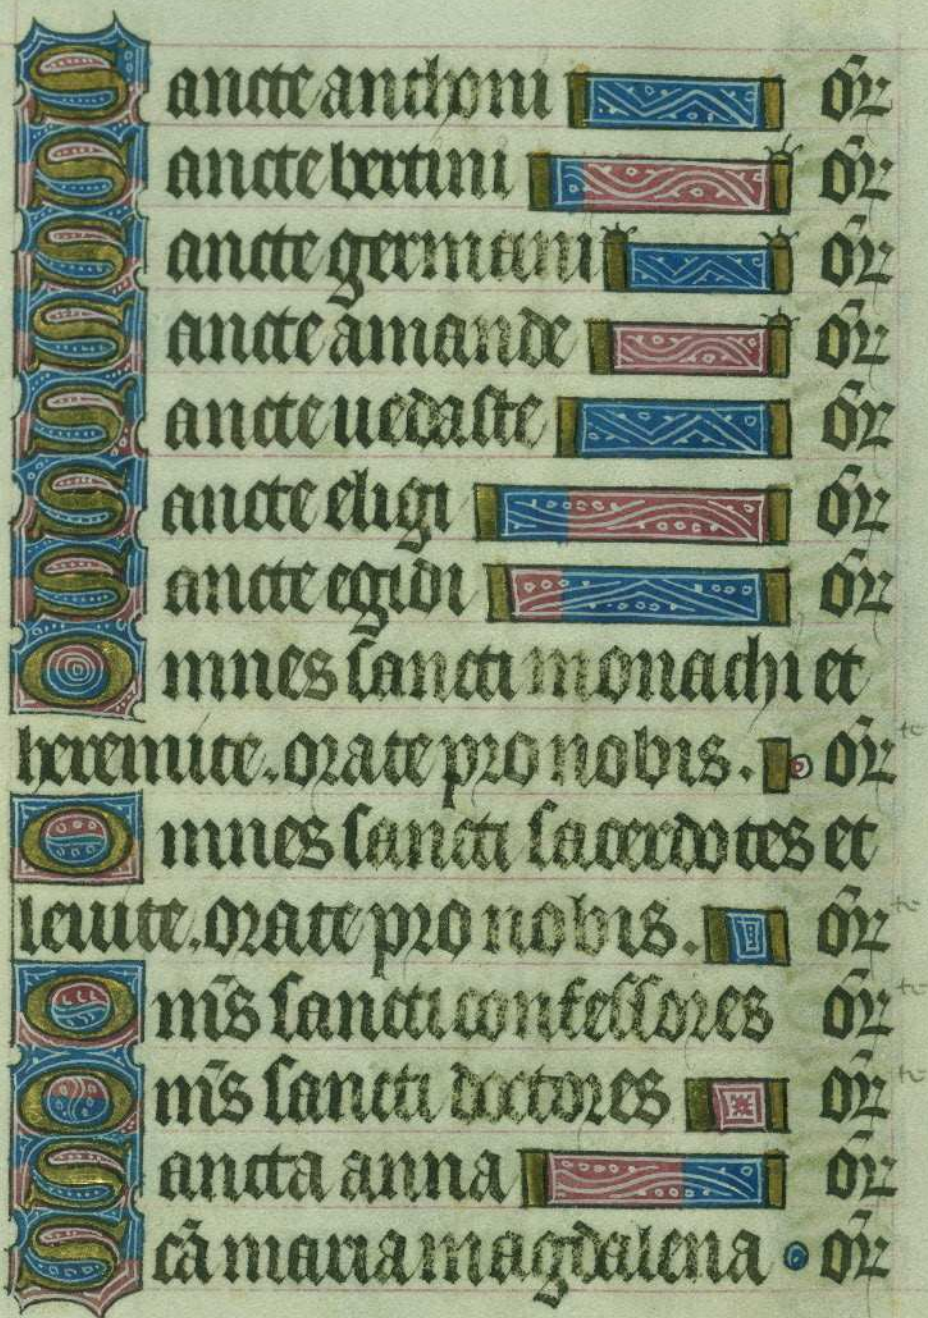 Sancte anthoni or̃
Sancte bertini or̃
Sancte germani or̃
Sancte amande or̃
Sancte uedaste or̃
Sancte eligi or̃
Sancte egidi or̃
Omnes sancti monachi et
heremite. orate pro nobis. or̃ te
Omnes sancti sacerdotes et
leuite. orate pro nobis. or̃ te
Om̃s sancti confessores or̃ te
Om̃s sancti doctores or̃ te
Sancta anna or̃
Scã maria magdalena or̃